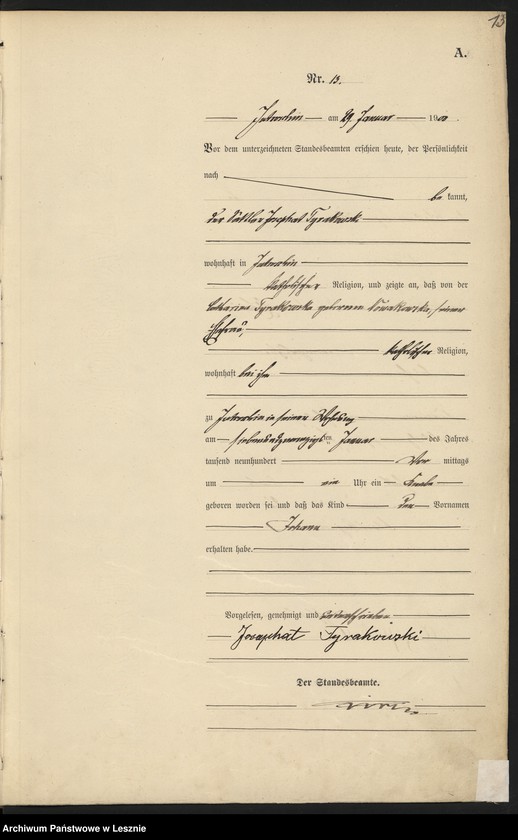 13
A.
Nr. 13.
am 29 Januar 1900
Vor dem unterzeichneten Standesbeamten erschien heute, der Persönlichkeit
nach
be kannt,
der Josephat Tyrakowski
wohnhaft in Jutroschin
katholischer Religion, und zeigte an, daß von der
Catharina Tyrakowska geborenen Nowakowska, seiner
Ehefrau,
katholischer Religion,
wohnhaft bei ihm
zu Jutroschin in seiner Wohnung
am siebenundzwanzigsten Januar des Jahres
tausend neunhundert Vor mittags
um ein Uhr ein Knabe
geboren worden sei und daß das Kind den Vornamen
Johann
erhalten habe.
Vorgelesen, genehmigt und unterschrieben
Josephat Tyrakowski
Der Standesbeamte.
Archiwum Państwowe w Lesznie